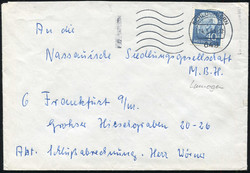 An die
Nassauische Siedlungsgesellschaft
M.B.H.
6 Frankfurt a/m.
Großer Hirschgraben 20-26
Abt. Schlußabrechnung, Herr Wörner